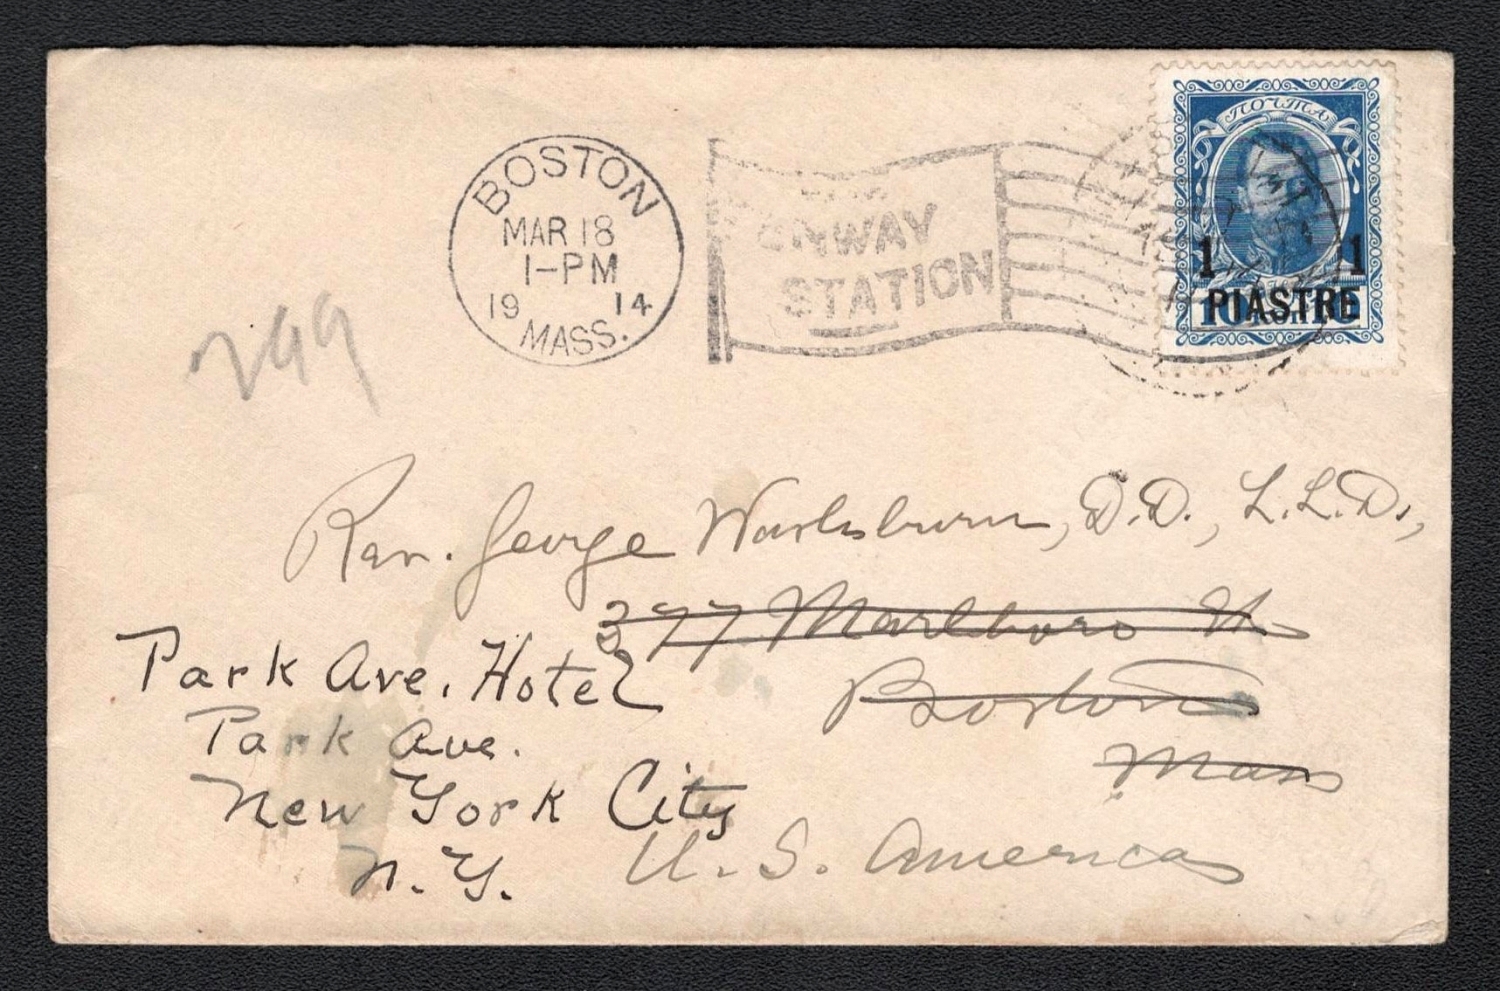 BOSTON
MAR 18
1-PM
19 14
MASS.
STATION
ПОЧТА
1 1
PIASTRE
299
Rev. George Washburn, D.D., L.L.D.,
377 Marlboro St.
Boston
Mass
Park Ave. Hotel
Park Ave.
New York City
N.Y.
U.S. America